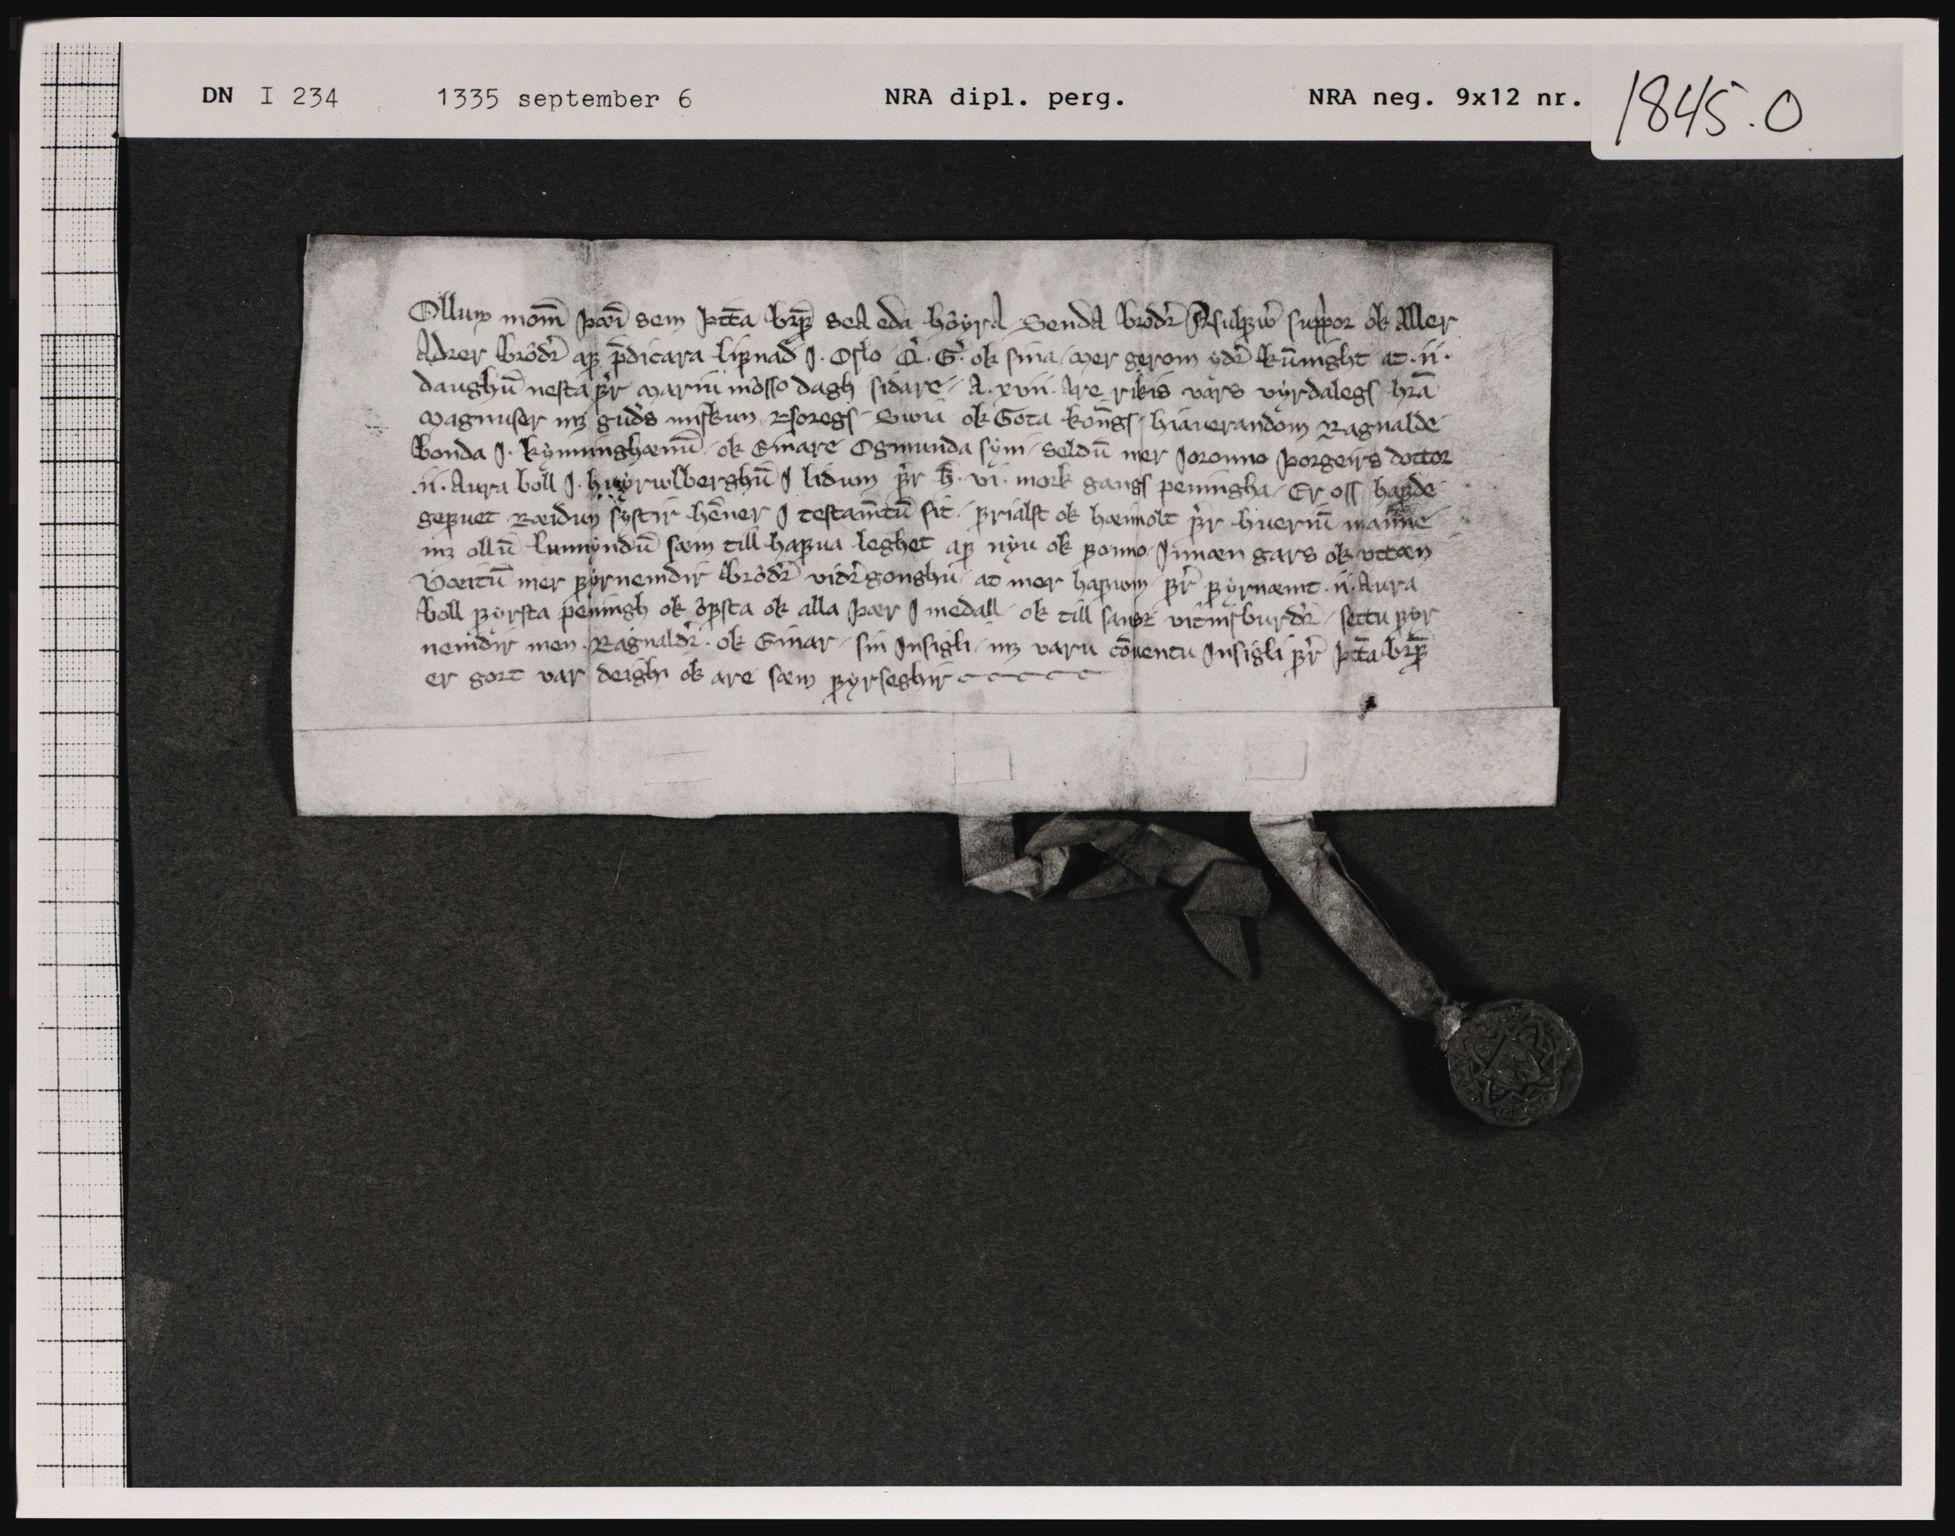 DN I 234 1335 september 6 NRA dipl. perg. NRA neg. 9x12 nr. 1845.0
Ollum mom̅ þæi̅ sem þtt̅a bref̅ sea eda höyra senda brödr suppor ok aller
adrer brödr af p̅dicara lifnad J. Oslo Q. G. ok sina mer gerom ydr ku̅night at .ii.
daughu̅ nesta fir mariu mösso dagh sidare A. xvii. are rikis vars vyrdalegs hra̅
magnuser mz guds miskun Noregs Swia ok Gota kon̅gs hiauerandom Ragnalde
bonda J. kynninghænu̅ ok Einare Ogmunda syni seldu̅ mer Joronno þorgeirs dottor
.ii. aura boll J. huyruolberghu̅ J lidum fir h̅. vi. mork gangs peningha Er oss hafde
gefuet Ræidun systir he̅ner J testam̅tu̅ sit frialst ok hæimolt fir huerni̅ man̅ne
mz ollu̅ lunnyndu̅ sæm till hafua leghet af nyu ok forno Jnnæn gars ok vttæn
Væitu̅ mer fyrnemdir brödr vidrgonghu at mer hafwm fir fyrnæmt .ii. aura
boll fyrsta peningh ok öfsta ok alla þær J medall ok till sannz vitnisburdr settu fyr
nemdir men Ragnaldr ok Einar sin Jnsigli mz varu co̅uentu Jnsigli fir þtt̅a bref̅
er gort var deighi ok are sæm fyrseghir